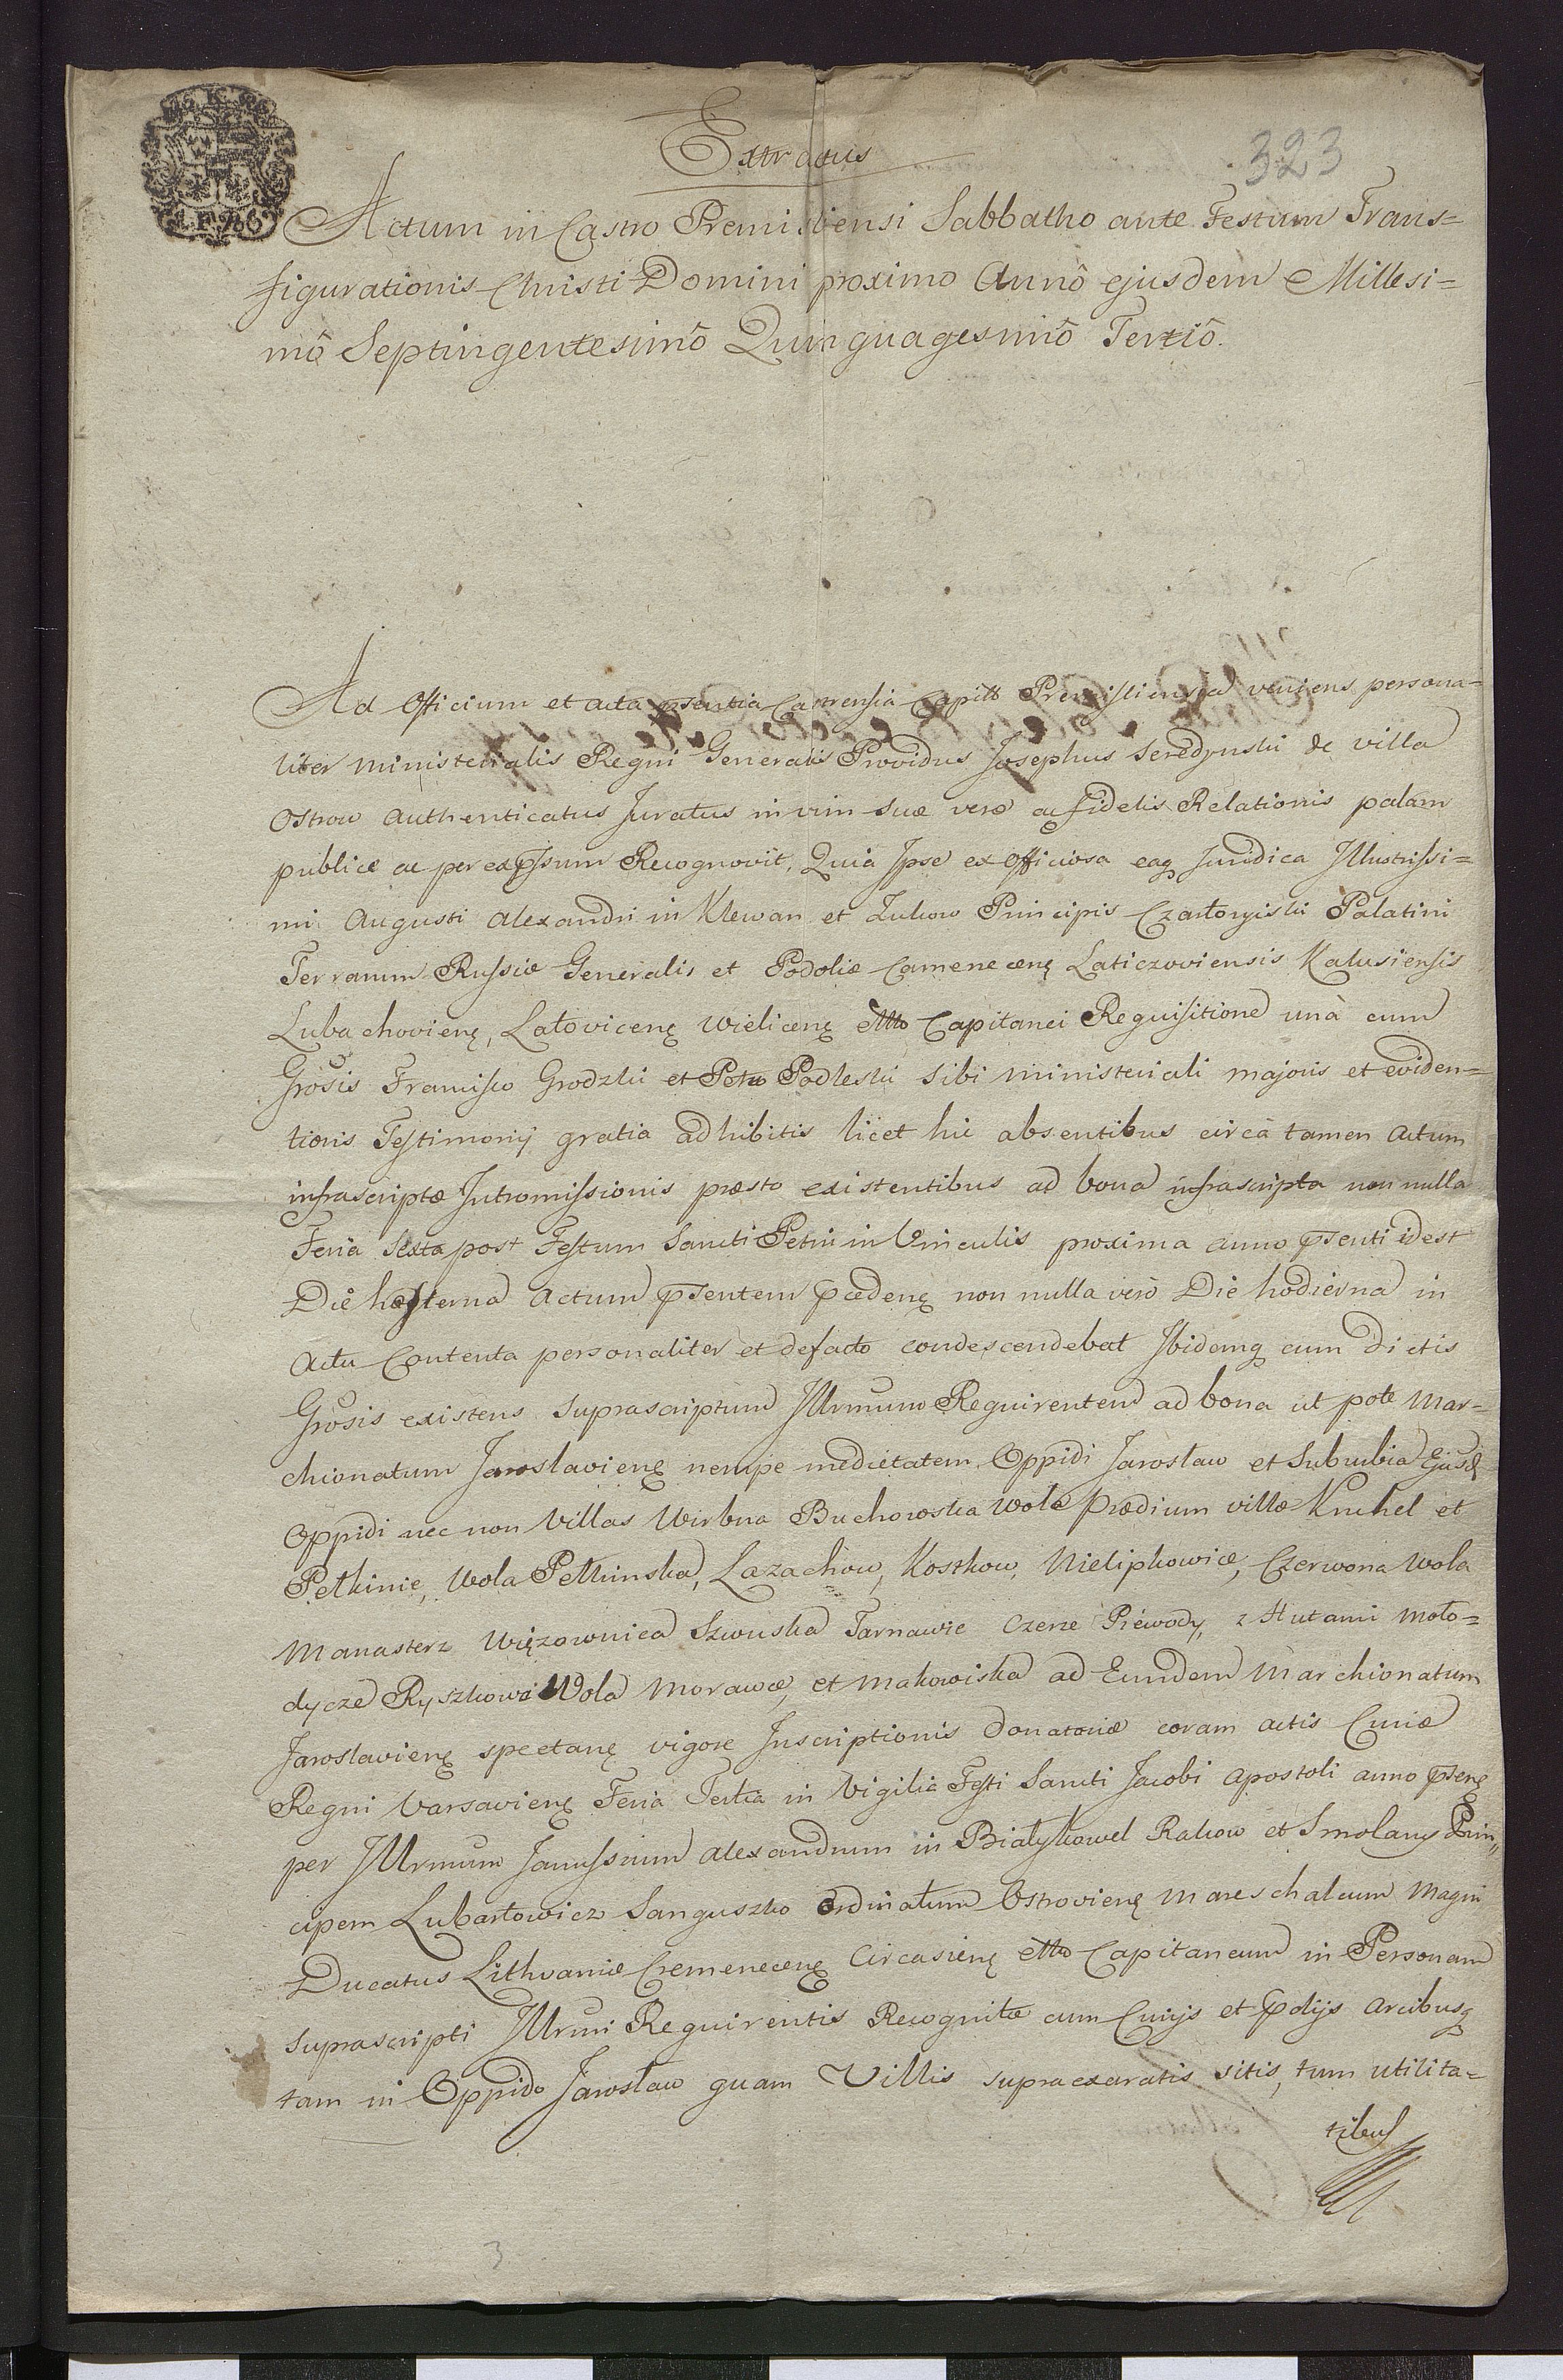 Extractus
323
Actum in Castro Premisliensi Sabbatho ante Festum Trans=
figurationis Christi Domini proximo Annô ejusdem Millesi=
mô Septingentesimô Quinquagesimô Tertiô.
Ad Officium et acta pñsentia Castrensia Capitt Premisliensia veniens persona=
liter ministerialis Regni Generalis Providus Josephus Seredynski de villa
Ostrow authenticatus Juratus in vim suæ veræ ac fidelis Relationis palam
publice ac per expssum Recognovit, Quia Ipse ex officiosa eaq Juridica Illustrissi=
mi Augusti Alexandri in Klewan et Zukow Principis Czartoryiski Palatini
Terrarum Russiæ Generalis et Podoliæ Camenecenę Laticzoviensis Kalusiensis
Lubachovienę, Latovicenę Wielicenę etto Capitanei Requisitione unà cum
Grôsis Francisco Grodzki et Petro Podleski sibi ministeriali majoris et eviden=
tioris Testimonij gratia adhibitis licet hic absentibus circa tamen actum
infrascriptæ Intromissionis præsto existentibus ad bona infrascripta non nulla
Feria Sexta post Festum Sancti Petri in Vinculis proxima anno pñsenti idest
Die hæsterna actum pñsentem pcedenę non nulla verò Die hodierna in
actu Contenta personaliter et defacto condescendebat Ibidemq cum dictis
Grôsis existens suprascriptum Illrmum Requirentem ad bona ut pote Mar=
chionatum Jaroslavienę nempe medietatem Oppidi Jarosław et Suburbia Ejusd
Oppidi nec non Villas Wirbna Buchowska Wola Prædium villæ Kruhel et
Petkinie, Wola Petkinska, Lazachow, Kostkow, Nielipkowice, Czerwona Wola
Manasterz Więzownica Szwuska Tarnawie Czerze Piéwody, z Hutami Moło=
dycze Ryszkowa Wola Morawce, et Makowiska ad Eundem Marchionatum
Jaroslavienę spectanę vigore Inscriptionis Donatoriæ coram actis Curiæ
Regni Varsavienę Feria Tertia in Vigilia Festi Sancti Jacobi Apostoli anno pñsenę
per Illrmum Janussium Alexandrum in Białykowel Rakow et Smolany Prin=
cipem Lubartowicz Sanguszko Ordinatum Ostrovienę Mareschalcum Magni
Ducatus Lithvaniæ Cremenecenę Circasienę etto Capitaneum in Personam
suprascripti Illrmi Requirentis Recognitæ cum Curijs et Pdijs arcibusq
tam in Oppido Jarosław quam Villis supraexaratis sitis, tum utilita=
tibus
3